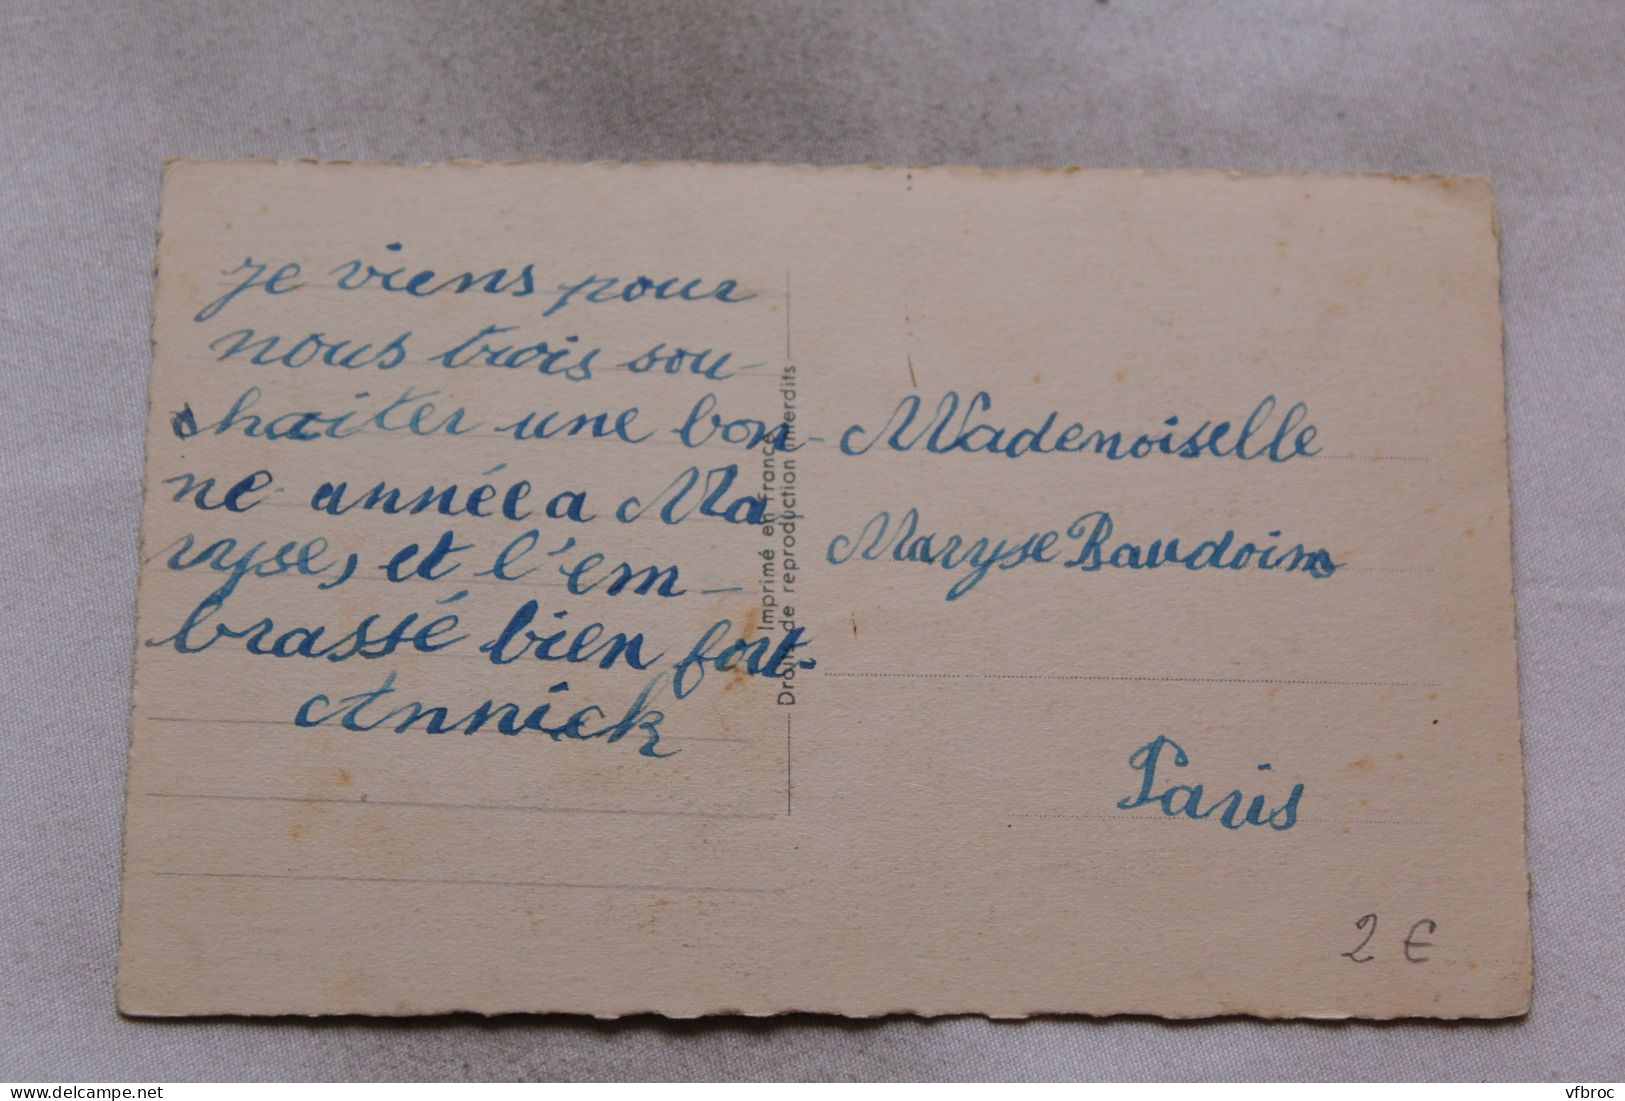 je viens pour
nous trois sou-
haiter une bon-
ne année a Ma
ryse, et l'em-
brassé bien fort.
Annick
Imprimé en France
Droits de reproduction interdits
Mademoiselle
Maryse Baudoin
Paris
2 €
delcampe.net
vfbroc